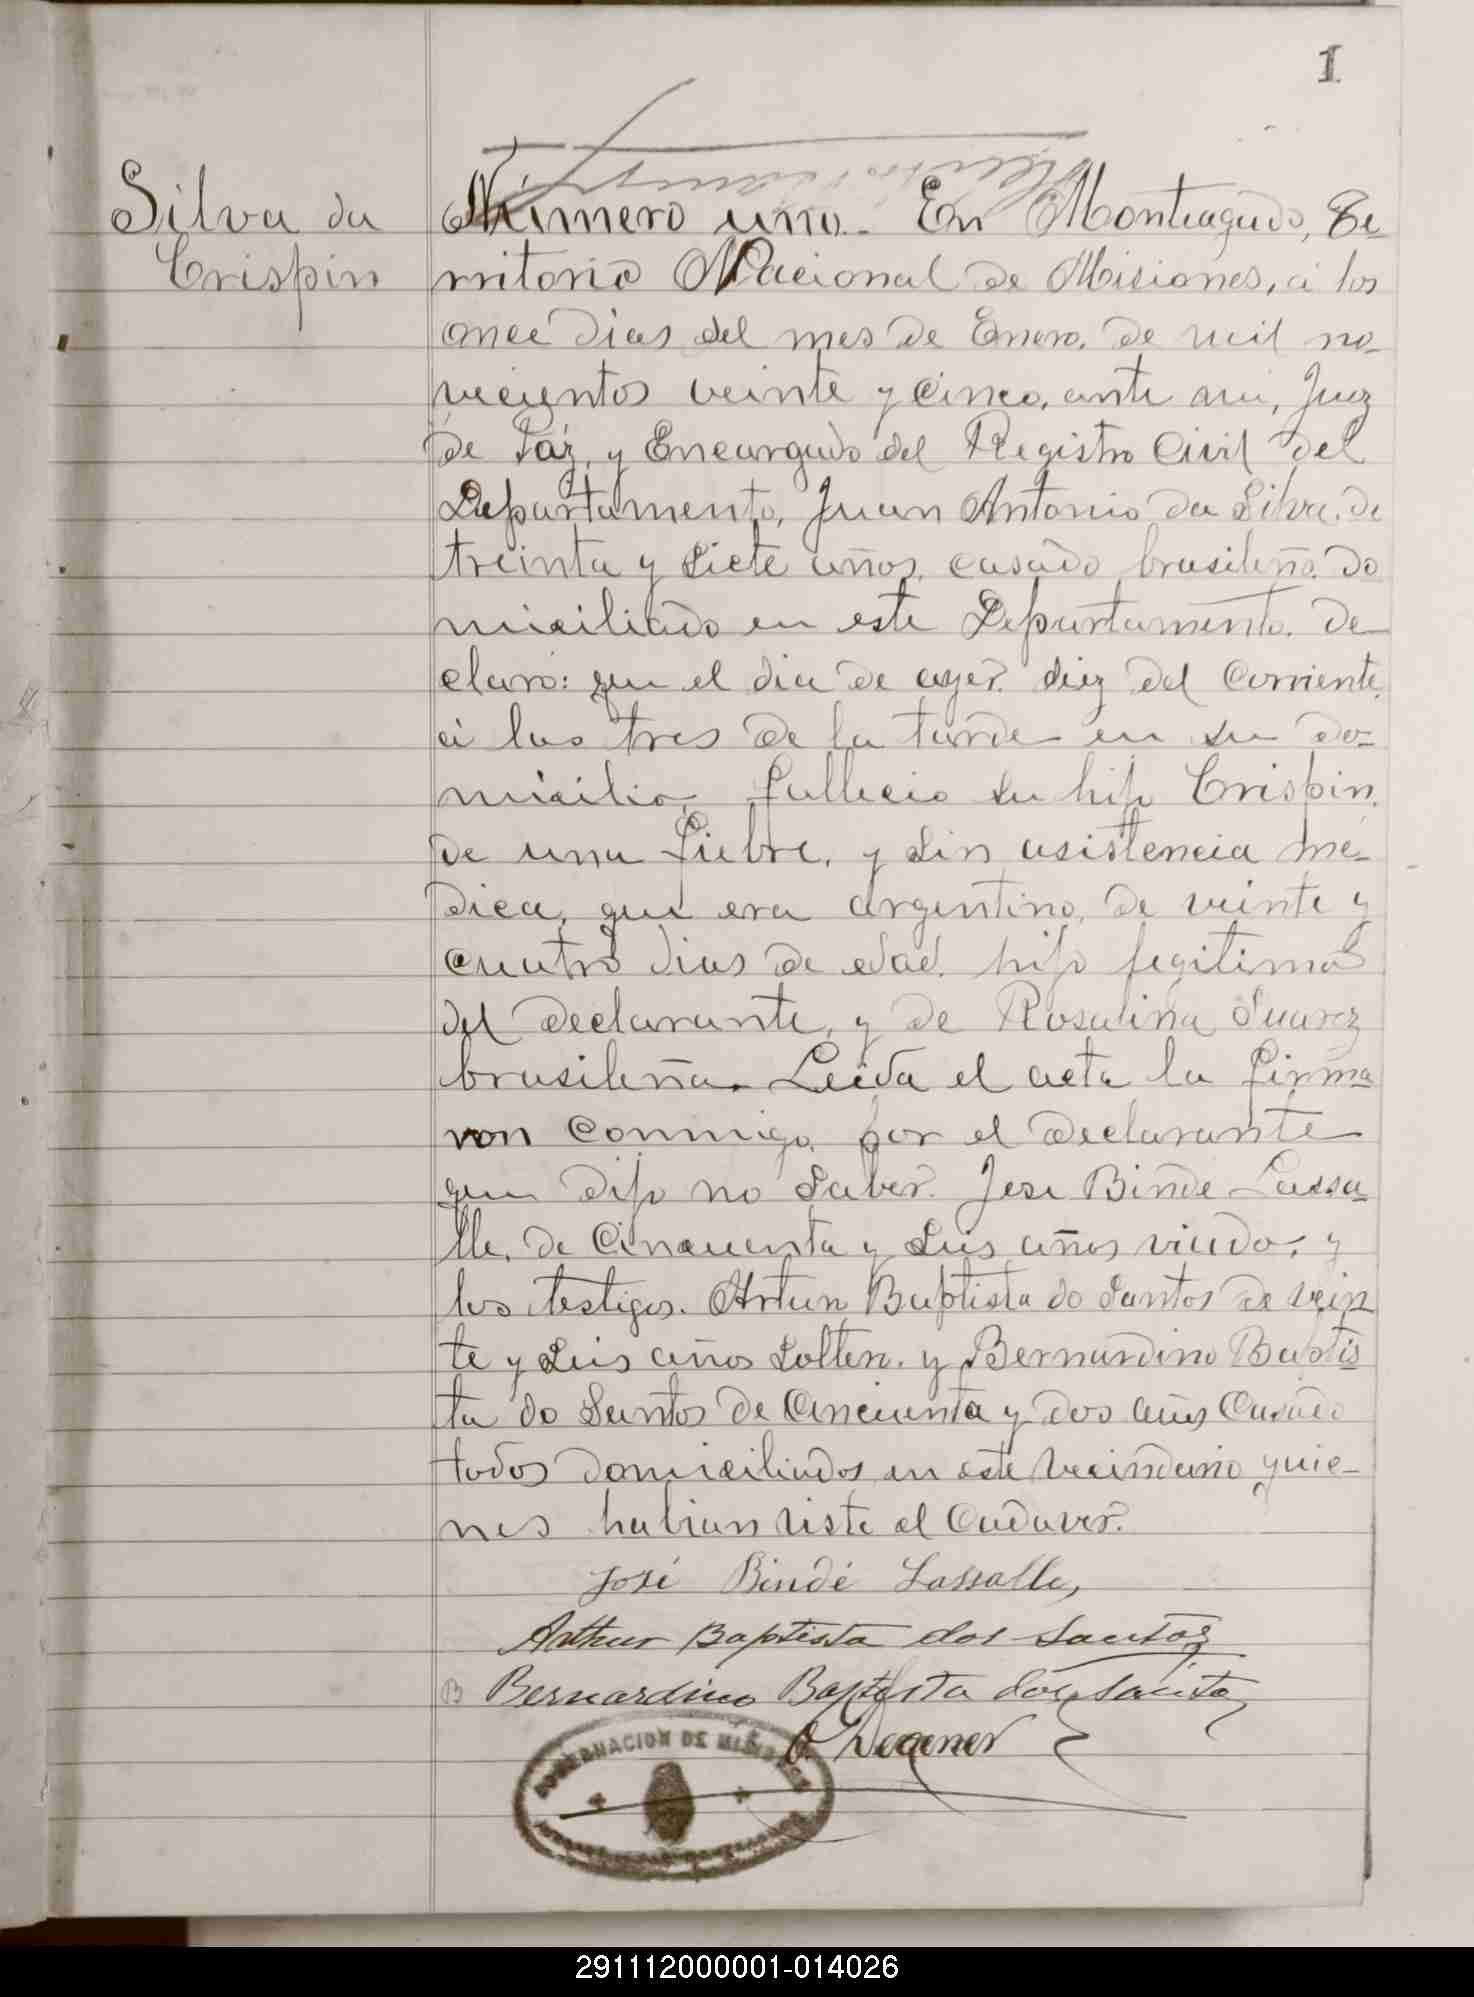 1
Silva da
Crispin
Número uno.- En Monteagudo, Te-
rritorio Nacional de Misiones, á los
once dias del mes de Enero, de mil no-
vecientos veinte y cinco, ante mi, Juez
de Páz, y Encargado del Registro Civil del
Departamento, Juan Antonio da Silva, de
treinta y siete años, casado, brasileño, do
miciliado en este Departamento, de-
claró: que el dia de ayer, diez del corriente,
á las tres de la tarde en su do-
micilio, fallecio su hijo Crispin,
de una fiebre, y sin asistencia mé-
dica, que era argentino, de veinte y
cuatro dias de edad, hijo legitimo
del declarante, y de Rosalina Suarez
brasileña. Leida el acta la firma
ron conmigo, por el declarante
que dijo no saber. Jose Binde Lassa-
lle, de cincuenta y seis años viudo, y
los testigos. Artur Baptista do Santos de vein
te y seis años soltero, y Bernardino Baptis
ta do Santos de cincuenta y dos años casado
todos domiciliados en este vecindario quie-
nes habian visto el cadaver.
José Bindé Lassalle,
Arthur Baptista dos Santos
B Bernardino Baptista dos Santos
O. Wegener
GOBERNACION DE MISIONES
291112000001-014026